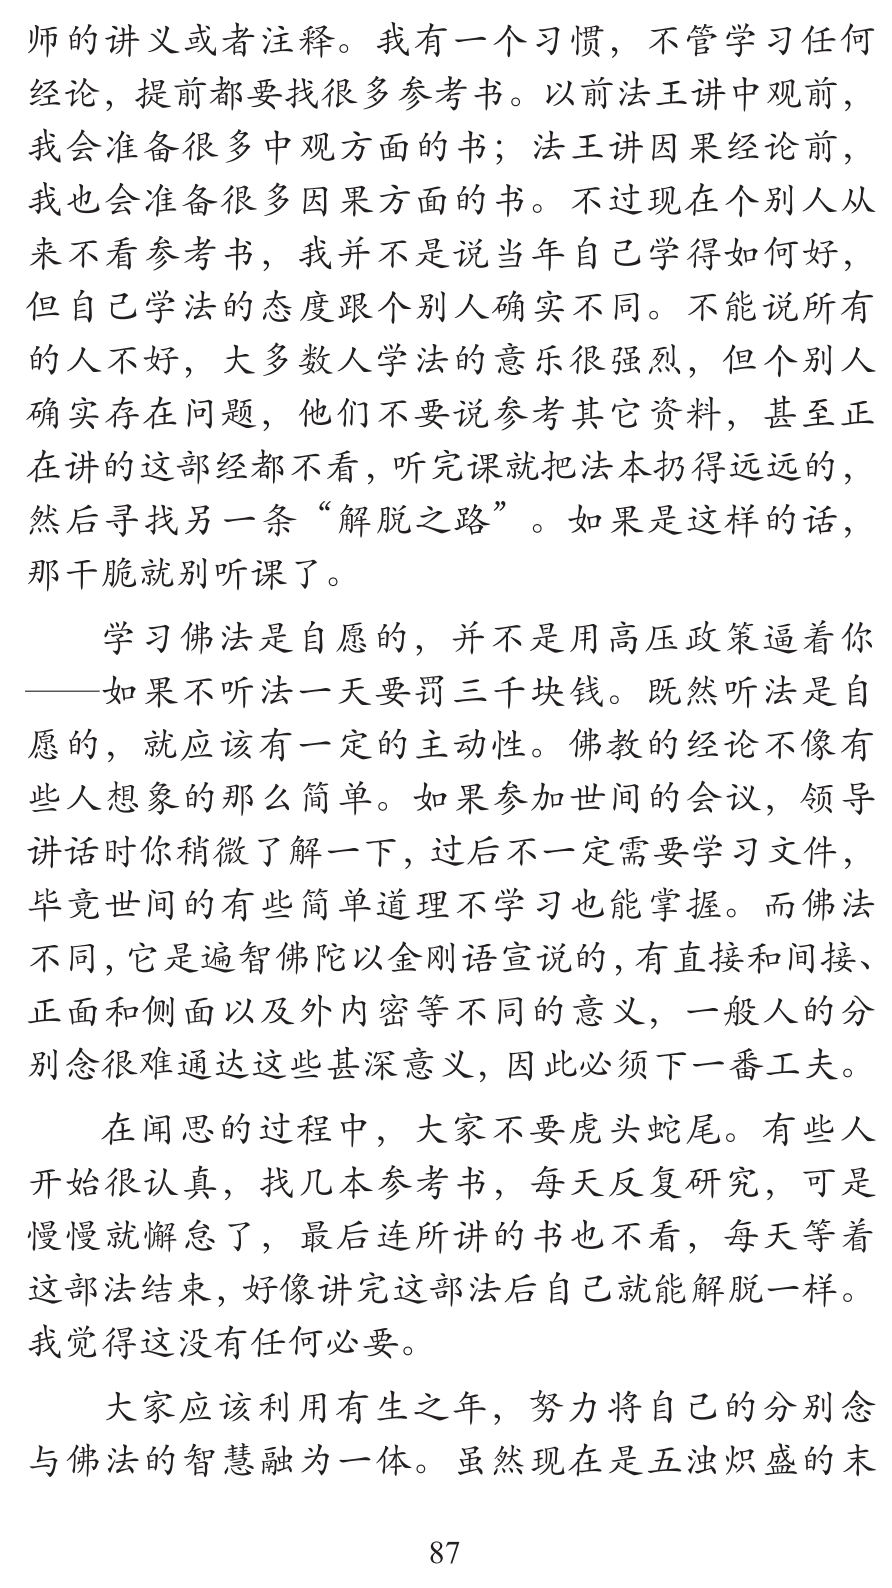 师的讲义或者注释。我有一个习惯，不管学习任何
经论，提前都要找很多参考书。以前法王讲中观前，
我会准备很多中观方面的书；法王讲因果经论前，
我也会准备很多因果方面的书。不过现在个别人从
来不看参考书，我并不是说当年自己学得如何好，
但自己学法的态度跟个别人确实不同。不能说所有
的人不好，大多数人学法的意乐很强烈，但个别人
确实存在问题，他们不要说参考其它资料，甚至正
在讲的这部经都不看，听完课就把法本扔得远远的，
然后寻找另一条“解脱之路”。如果是这样的话，
那干脆就别听课了。
学习佛法是自愿的，并不是用高压政策逼着你
——如果不听法一天要罚三千块钱。既然听法是自
愿的，就应该有一定的主动性。佛教的经论不像有
些人想象的那么简单。如果参加世间的会议，领导
讲话时你稍微了解一下，过后不一定需要学习文件，
毕竟世间的有些简单道理不学习也能掌握。而佛法
不同，它是遍智佛陀以金刚语宣说的，有直接和间接、
正面和侧面以及外内密等不同的意义，一般人的分
别念很难通达这些甚深意义，因此必须下一番工夫。
在闻思的过程中，大家不要虎头蛇尾。有些人
开始很认真，找几本参考书，每天反复研究，可是
慢慢就懈怠了，最后连所讲的书也不看，每天等着
这部法结束，好像讲完这部法后自己就能解脱一样。
我觉得这没有任何必要。
大家应该利用有生之年，努力将自己的分别念
与佛法的智慧融为一体。虽然现在是五浊炽盛的末
87